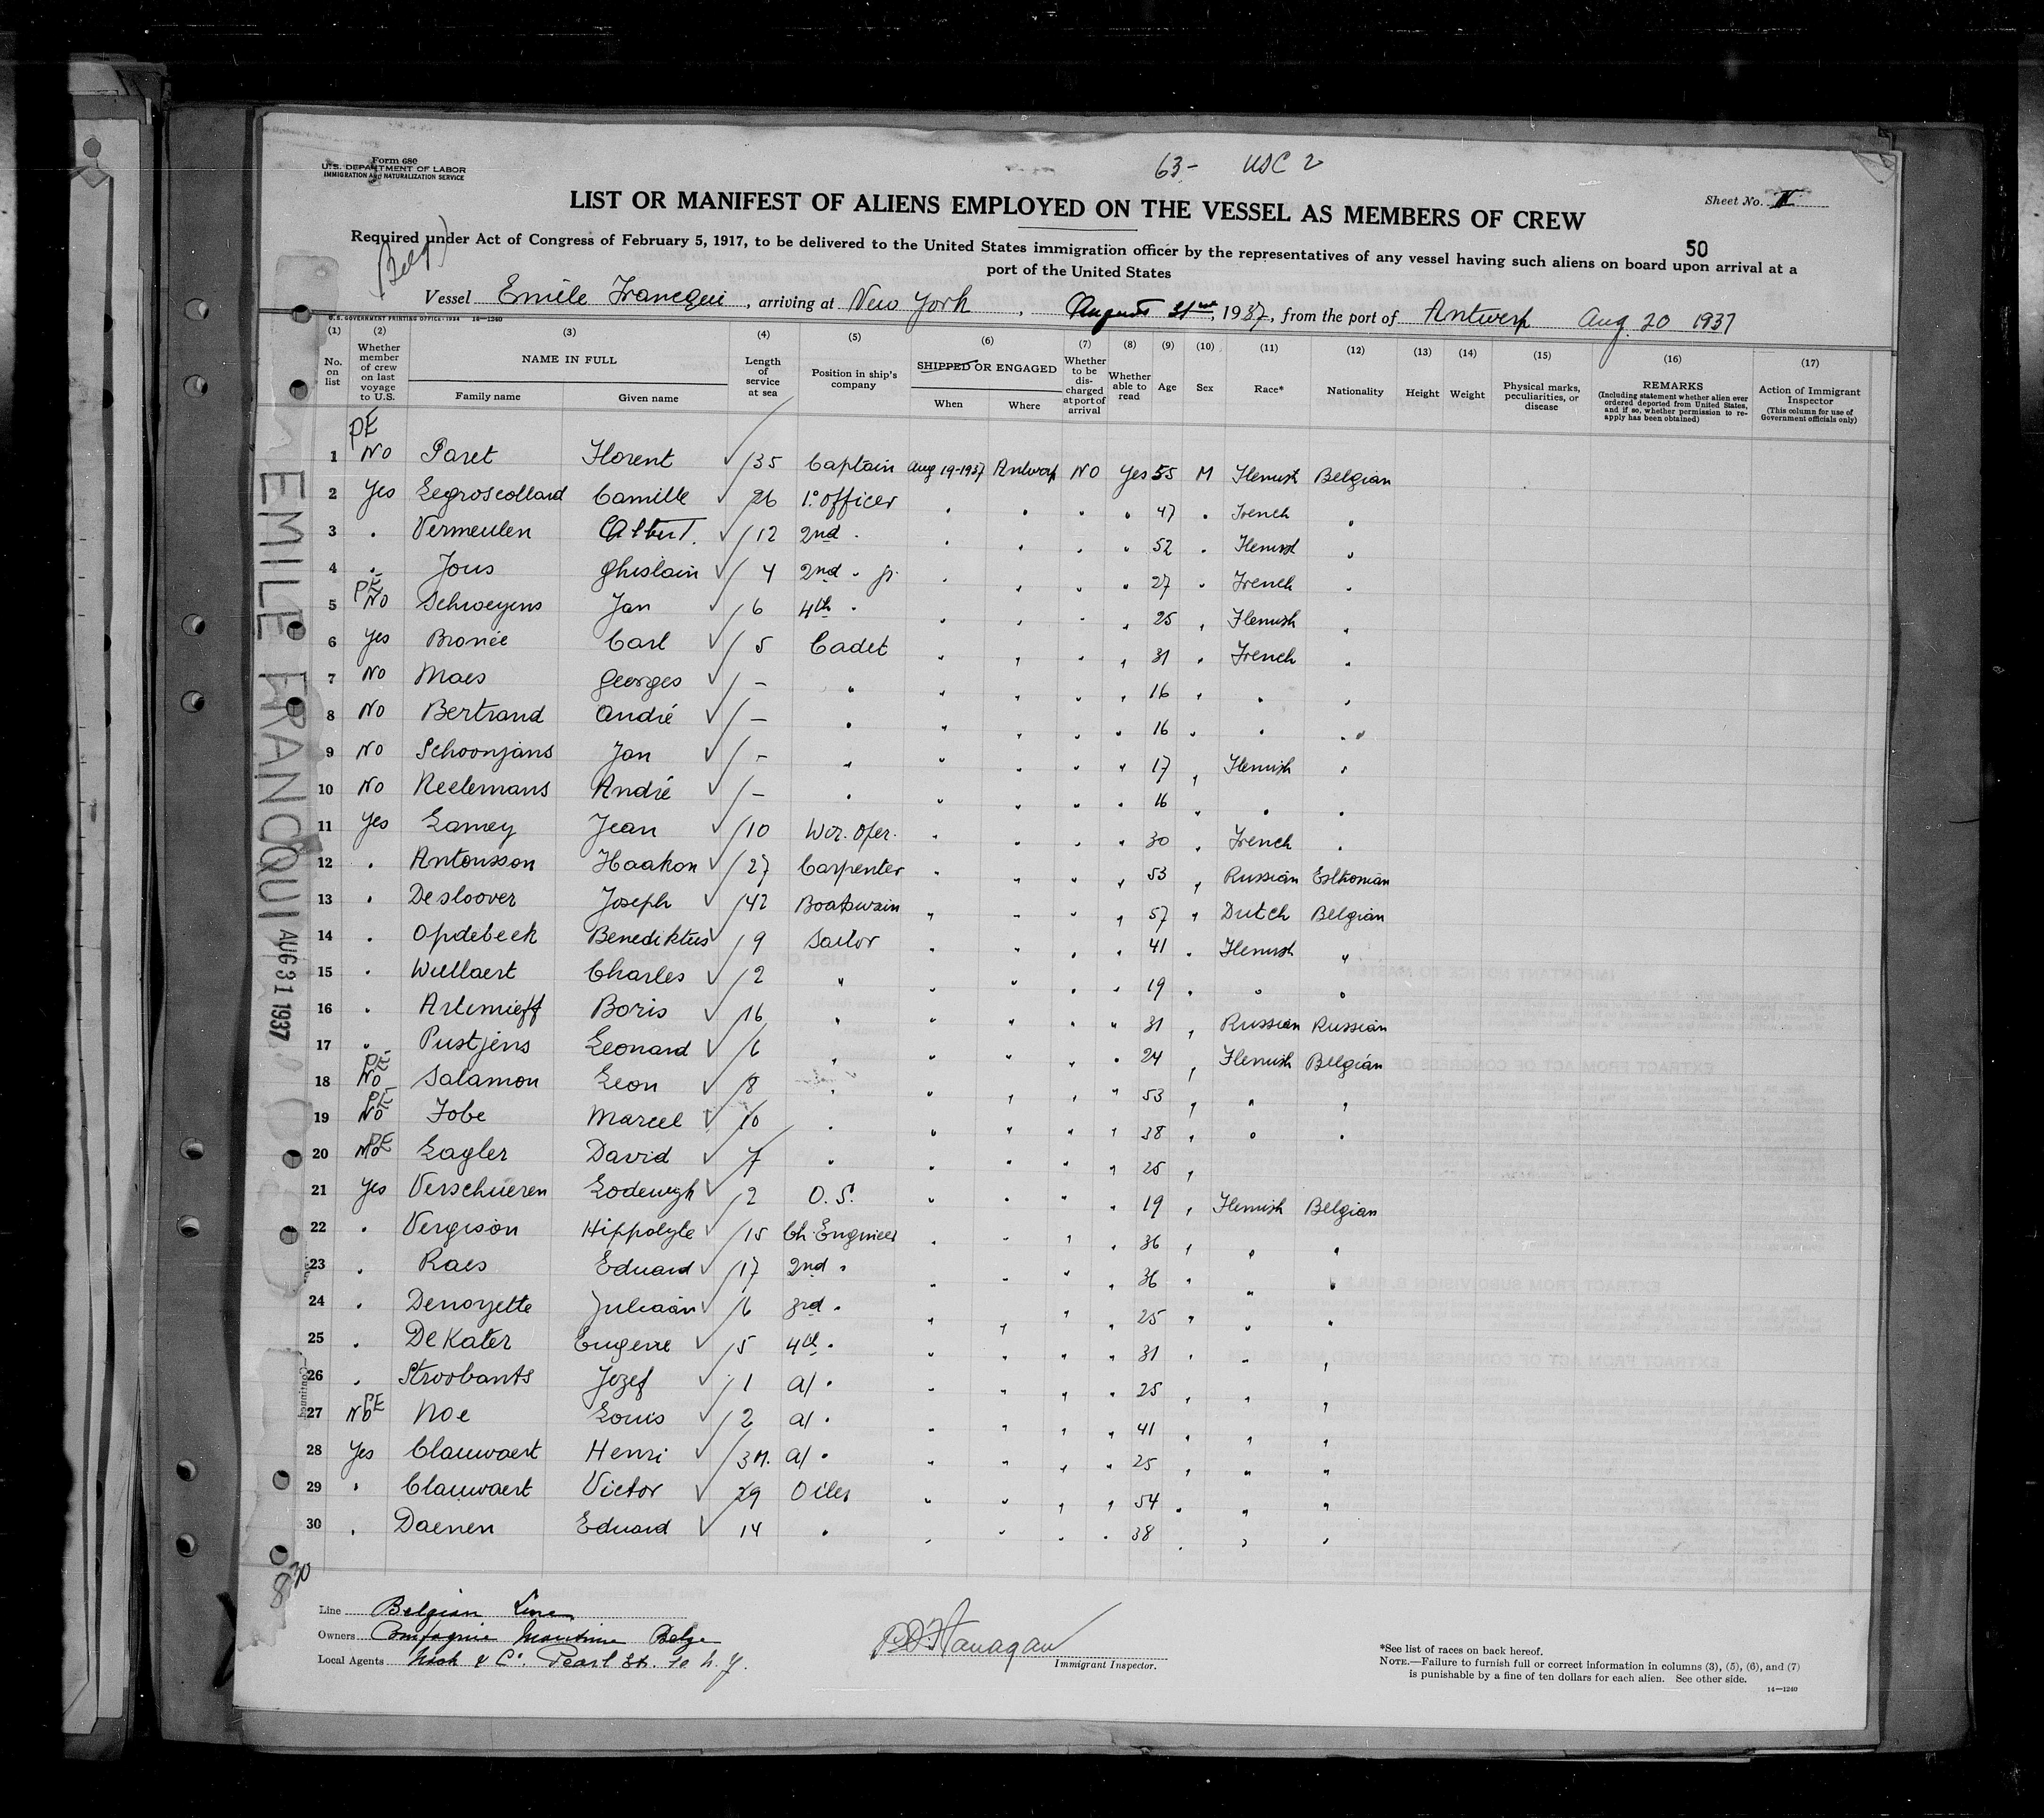 Form 680
U.S. DEPARTMENT OF LABOR
IMMIGRATION AND NATURALIZATION SERVICE
63- USC 2
Sheet No.
LIST OR MANIFEST OF ALIENS EMPLOYED ON THE VESSEL AS MEMBERS OF CREW
50
Required under Act of Congress of February 5, 1917, to be delivered to the United States immigration officer by the representatives of any vessel having such aliens on board upon arrival at a
port of the United States
(Belg)
Vessel Emile Francqui, arriving at New York, August 31st, 1937, from the port of Antwerp Aug. 20 1937
U.S. GOVERNMENT PRINTING OFFICE: 1934 14—1240
(1) (2) (3) (4) (5) (6) (7) (8) (9) (10) (11) (12) (13) (14) (15) (16) (17)
No. on list
Whether member of crew on last voyage to U.S.
NAME IN FULL
Family name Given name
Length of service at sea
Position in ship's company
SHIPPED OR ENGAGED
When Where
Whether to be discharged at port of arrival
Whether able to read
Age
Sex
Race*
Nationality
Height
Weight
Physical marks, peculiarities, or disease
REMARKS
(Including statement whether alien ever ordered deported from United States, and if so, whether permission to reapply has been obtained)
Action of Immigrant Inspector
(This column for use of Government officials only)
PE
1 No Paret Florent √ 35 Captain Aug 19-1937 Antwerp No Yes 55 M Flemish Belgian
2 Yes Legroscollard Camille √ 26 1° Officer " " " " 47 " French "
3 " Vermeulen Albert √ 12 2nd " " " " " 52 " Flemish "
4 " Jous Ghislain √ 4 2nd " jr. " " " " 27 " French "
5 PE No Schroeyens Jan √ 6 4th " " " " " 25 " Flemish "
6 Yes Bronée Carl √ 5 Cadet " " " " 31 " French "
7 No Maes Georges √ - " " " " " 16 " " "
8 No Bertrand André √ - " " " " " 16 " " "
9 No Schoonjans Jan √ - " " " " " 17 " Flemish "
10 No Keelemans André √ - " " " " " 16 " " "
11 Yes Lamey Jean √ 10 Wir. Oper. " " " " 30 " French "
12 " Antonsson Haakon √ 27 Carpenter " " " " 53 " Russian Esthonian
13 " Desloover Joseph √ 42 Boatswain " " " " 57 " Dutch Belgian
14 " Opdebeek Benediktus √ 9 Sailor " " " " 41 " Flemish "
15 " Willaert Charles √ 2 " " " " " 19 " " "
16 " Artemieff Boris √ 16 " " " " " 31 " Russian Russian
17 " Pustjens Leonard √ 6 " " " " " 24 " Flemish Belgian
18 PE No Salamon Leon √ 8 " " " " " 53 " " "
19 PE No Fobe Marcel √ 10 " " " " " 38 " " "
20 No PE Lagler David √ 7 " " " " " 25 "
21 Yes Verschueren Lodewyk √ 2 O.S. " " " " 19 " Flemish Belgian
22 " Vergison Hippolyte √ 15 Ch. Engineer " " " " 36 " " "
23 " Raes Eduard √ 17 2nd " " " " " 36 " " "
24 " Denoyette Juliaan √ 6 3rd " " " " " 25 " " "
25 " De Kater Eugene √ 5 4th " " " " " 31 " " "
26 " Stroobants Jozef √ 1 a/ " " " " " 25 " " "
27 No PE Noe Louis √ 2 a/ " " " " " 41 " " "
28 Yes Clauwaert Henri √ 3 M. a/ " " " " " 25 " " "
29 " Clauwaert Victor √ 29 Oiler " " " " 54 " " "
30 " Daenen Eduard √ 14 " " " " " 38 " " "
30
EMILE FRANCQUI AUG 31 1937
Line Belgian Line
Owners Compagnie Maritime Belge
Local Agents & Co. Pearl St. N.Y.
Flanagan
Immigrant Inspector.
*See list of races on back hereof.
NOTE.—Failure to furnish full or correct information in columns (3), (5), (6), and (7)
is punishable by a fine of ten dollars for each alien. See other side.
14—1240